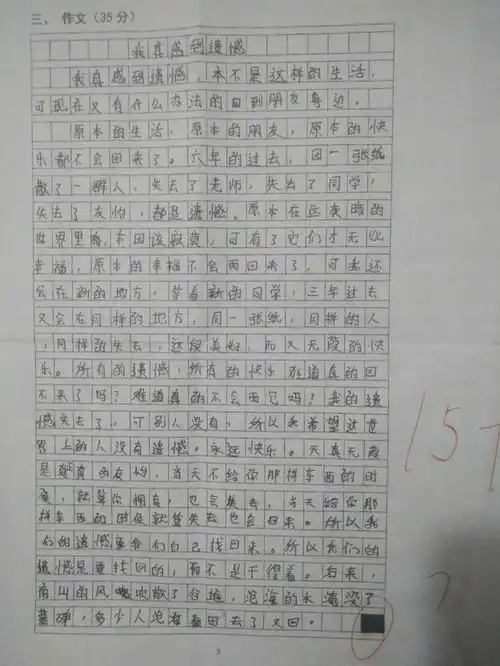 三、作文(35分)
我真感到遗憾
我真感到遗憾，本不是这样的生活，
可现在又有什么办法的回到朋友身边。
原本的生活，原本的朋友，原本的快
乐都不会回来了。六年的过去，因一张纸
散了一群人，失去了老师，失去了同学，
失去了友怕，都是遗憾。原本在这灰暗的
世界里着，本因该寂寞，可有了它们才无比
幸福，原本的幸福不会再回来了，可去还
会在新的地方，等着新的同学，三年过去
又会在同样的地方，同一张纸，同样的人
，同样的失去，这段美好，而又无段的快
乐。所有的遗憾，所有的快乐难道真的回
不来了吗？难道真的不会再见吗？我的遗
憾失去了，可别人没有，所以我希望这世
界上的人没有遗憾，永远快乐。天真无霞
是真友怕，当天不给你那样东西的时
候，就算你拥有，也会失去，当天给你那
样东西的时候就算失去也会回来。所以我
们的遗憾要我们自己找回来。所以我们的
遗憾是要找回的，而不是干得着。后来，
南山的风吹散了谷堆，沧海的水淹没了
墓碑，多少人沧海回去了又回。
3
157